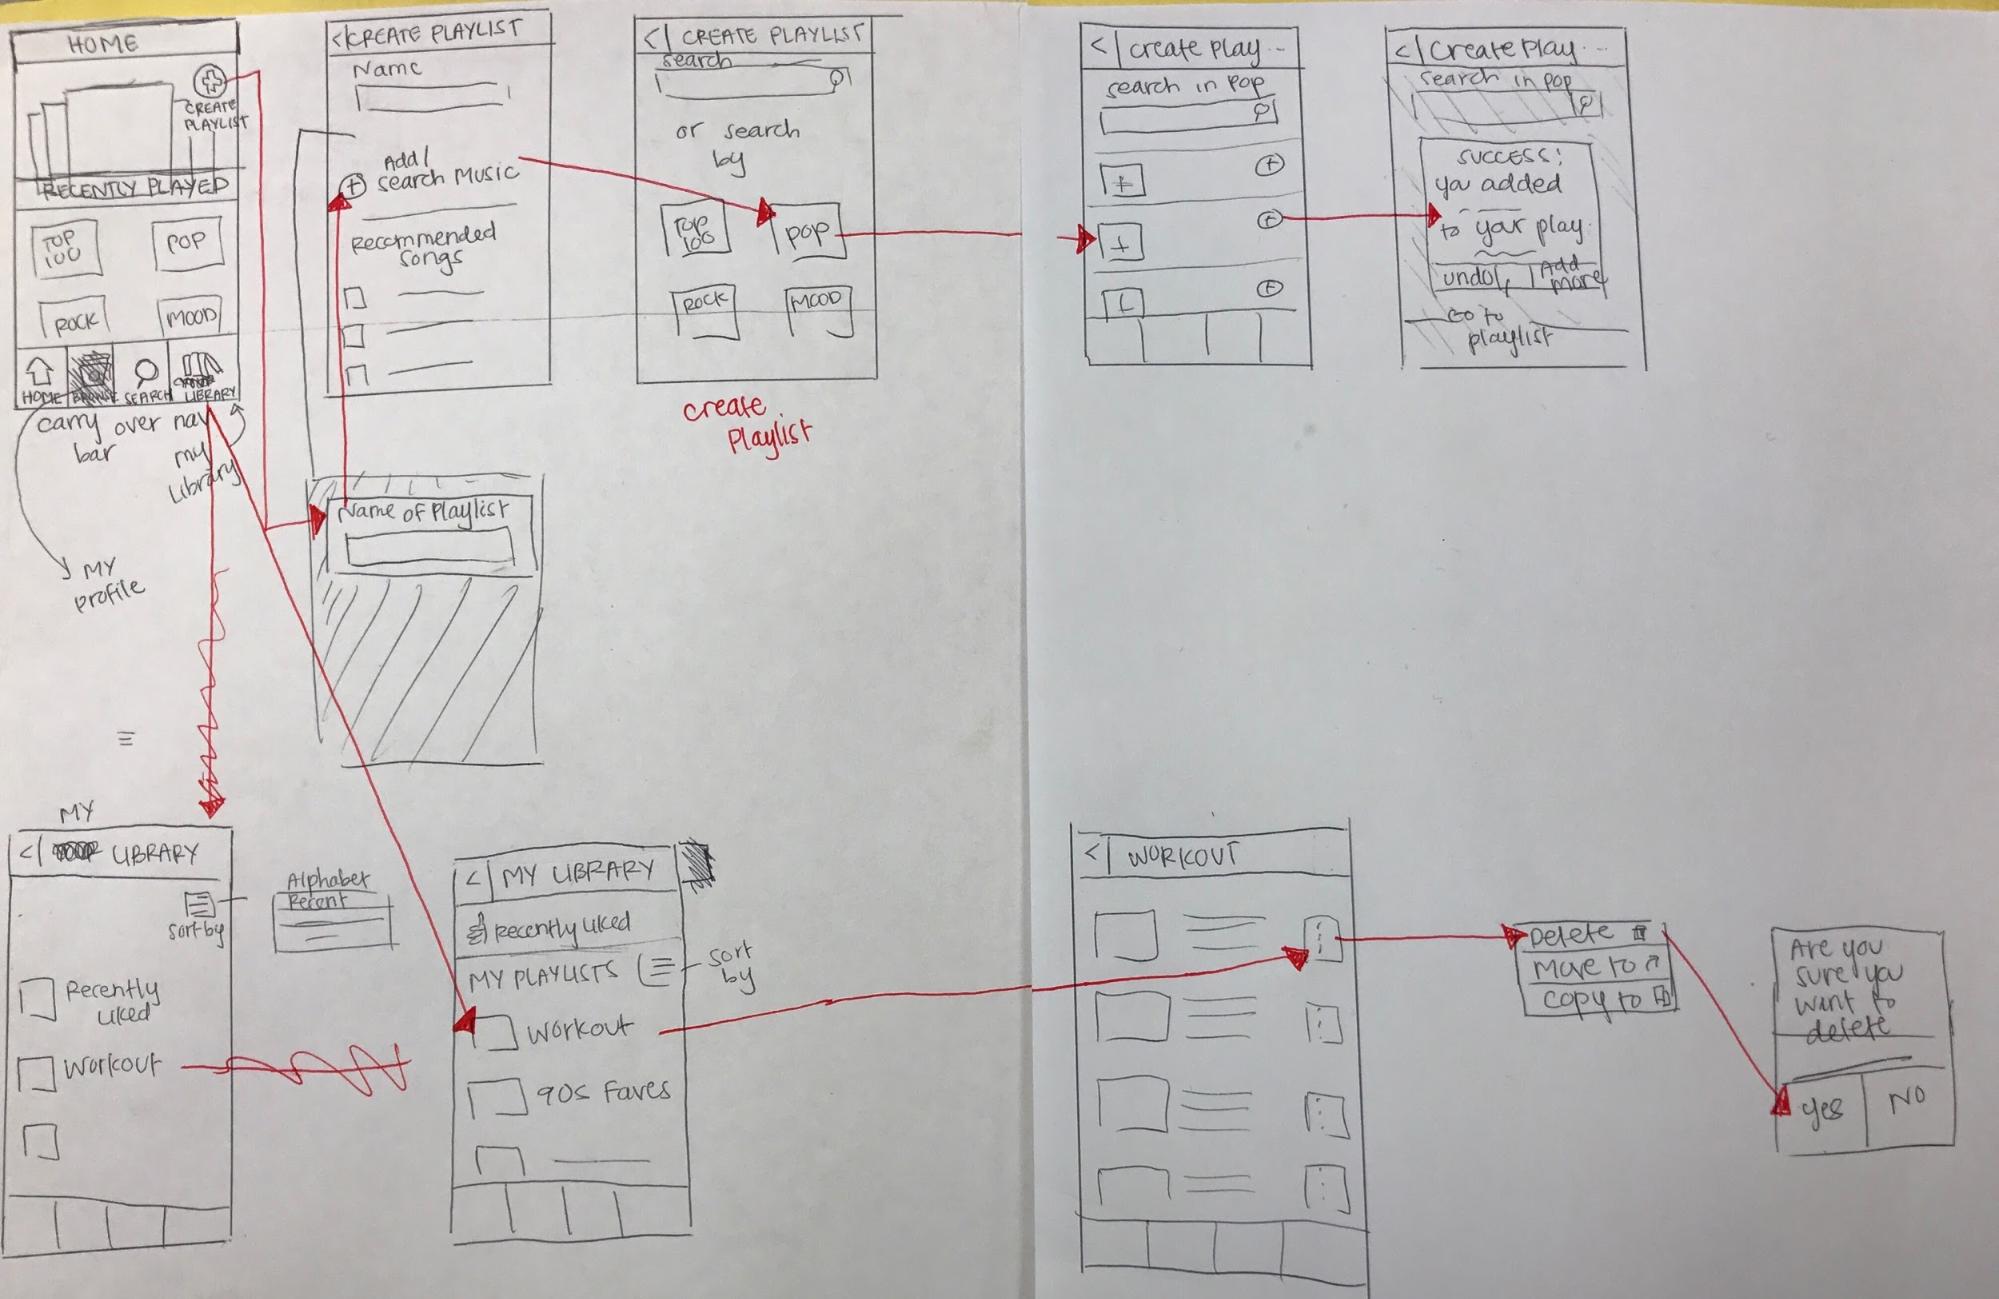 HOME
CREATE
PLAYLIST
RECENTLY PLAYED
TOP
100
POP
ROCK
MOOD
HOME
SEARCH
LIBRARY
carry over nav
bar
my
Library
MY
profile
< CREATE PLAYLIST
Name
Add/
search Music
Recommended
songs
Name of Playlist
< CREATE PLAYLIST
search
or search
by
TOP
100
POP
ROCK
MOOD
create
Playlist
< create play ...
search in pop
< create play ...
search in pop
SUCCESS!
you added
to your play
undo
Add
more
Go to
playlist
MY
< LIBRARY
sort by
Alphabet
Recent
Recently
liked
Workout
< MY LIBRARY
Recently liked
MY PLAYLISTS
sort
by
Workout
90s Faves
< WORKOUT
Delete
Move to
copy to
Are you
sure you
want to
delete
yes
NO